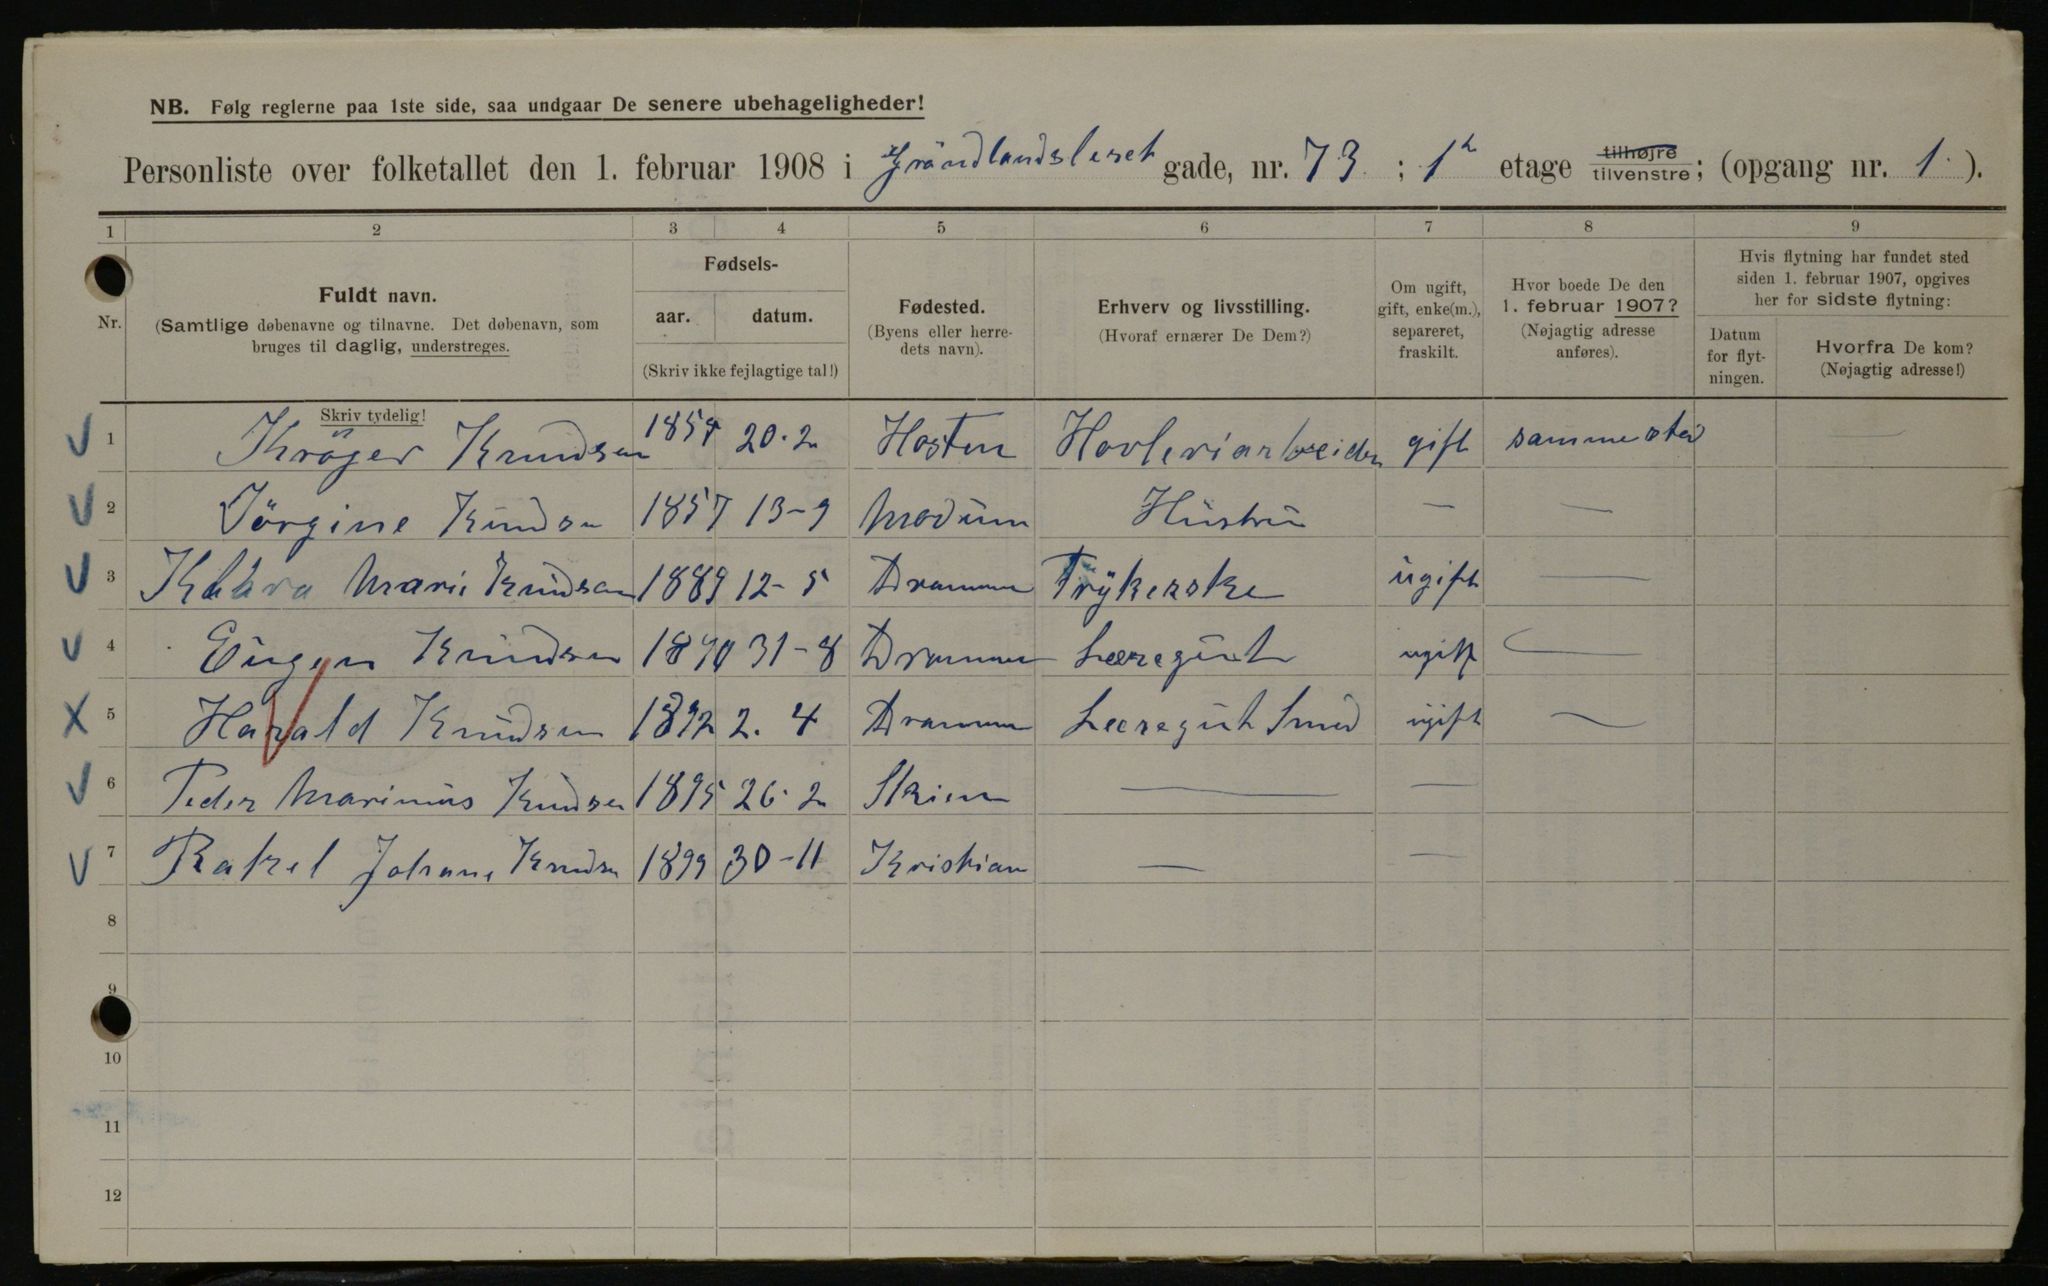 NB. Følg reglerne paa 1ste side, saa undgaar De senere ubehageligheder!
Personliste over folketallet den 1. februar 1908 i Gründlandsleret gade, nr. 73 ; 1ᵗ etage tilhøjre tilvenstre; (opgang nr. 1.).
1 2 3 4 5 6 7 8 9
Nr.
Fuldt navn.
(Samtlige døbenavne og tilnavne. Det døbenavn, som
bruges til daglig, understreges.
Skriv tydelig!
Fødsels-
aar. datum.
(Skriv ikke fejlagtige tal!)
Fødested.
(Byens eller herre-
dets navn).
Erhverv og livsstilling.
(Hvoraf ernærer De Dem?)
Om ugift,
gift, enke(m.),
separeret,
fraskilt.
Hvor boede De den
1. februar 1907?
(Nøjagtig adresse
anføres).
Hvis flytning har fundet sted
siden 1. februar 1907, opgives
her for sidste flytning:
Datum
for flyt-
ningen.
Hvorfra De kom?
(Nøjagtig adresse!)
1 Kröger Knudsen 20-2 gift sammested —
2 Jörgine Knudsen 1857 13-9 Modum Hüstru — —
3 Marie Knudsen 1889 12-5 Drammen Trykerske ugift —
4 Eugen Knudsen 1890 31-8 Drammen Læregut ugift —
5 Harald Knudsen 1892 2. 4 Drammen Læregut Smed ugift —
6 Peder Marinius Knudsen 1895 26-2 Skien — —
7 Rakel Johane Knudsen 1899 30-11 Kristian — —
8
9
10
11
12